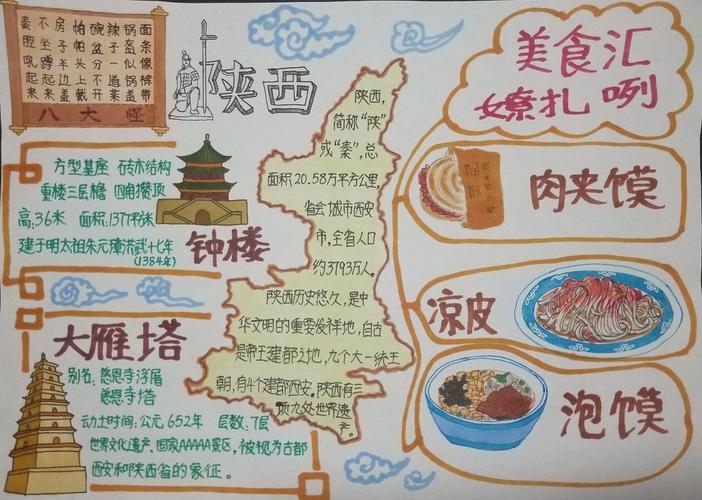 面条像裤带
锅盔似锅盖
辣子一道菜
碗盆分不开
帕帕头上戴
房子半边盖
不坐蹲起来
秦腔吼起来
八大怪
陕西
方型基座 砖木结构
重楼三层檐 四角攒顶
高:36米 面积:1377平米
建于明太祖朱元璋洪武十七年
(1384年)
钟楼
大雁塔
别名:慈恩寺浮屠
慈恩寺塔
动土时间:公元652年 层数:7层
世界文化遗产、国家AAAAA景区,被视为古都
西安和陕西省的象征。
陕西,
简称“陕”
或“秦”,总
面积20.58万平方公里,
省会城市西安
市,全省人口
约3793万人。
陕西历史悠久,是中
华文明的重要发祥地,自古
是帝王建都之地,九个大一统王
朝,有4个建都西安。陕西有三
项九处世界遗产。
美食汇
嫽扎咧
肉夹馍
凉皮
泡馍